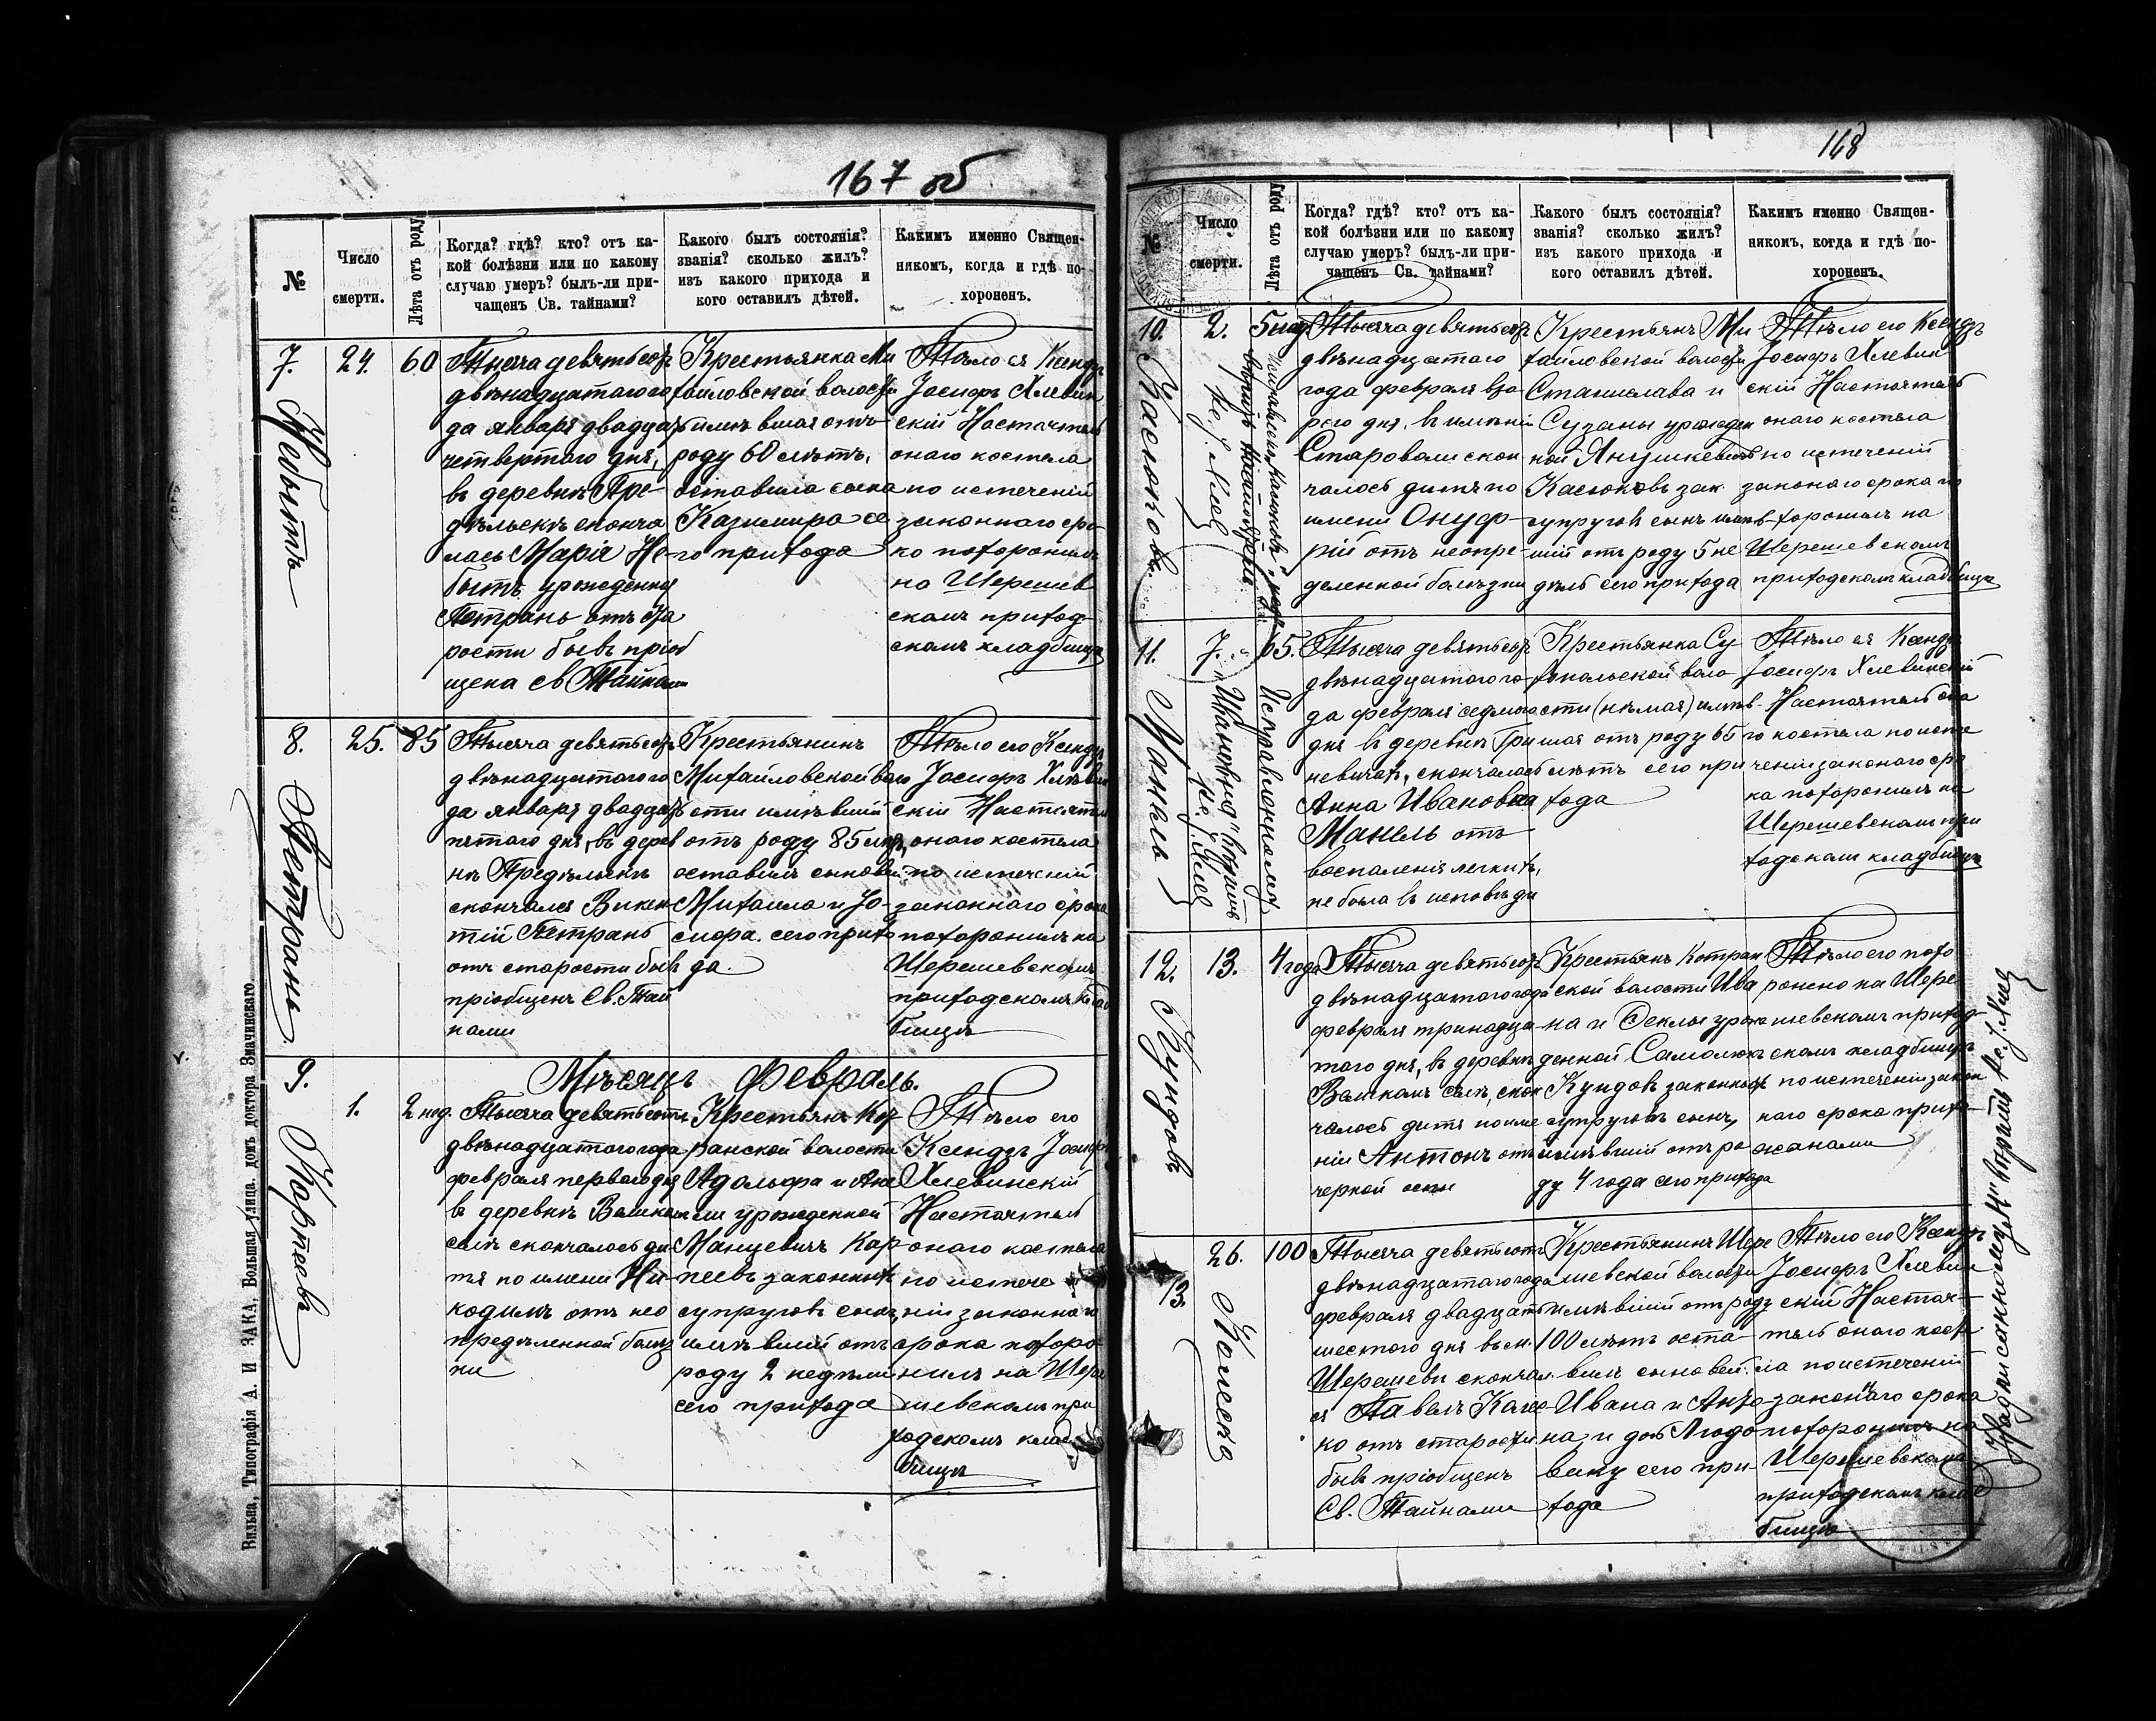 167 об
№
Число смерти.
Лѣта отъ роду
Когда? гдѣ? кто? отъ ка-
кой болѣзни или по какому
случаю умеръ? былъ-ли при-
чащенъ Св. тайнами?
Какого былъ состоянія?
званія? сколько жилъ?
изъ какого прихода и
кого оставилъ дѣтей.
Какимъ именно Священ-
никомъ, когда и гдѣ по-
хороненъ.
7.
Небытъ
24.
60
Тысяча девятьсотъ
двѣнадцатаго го
да января двадцать
четвертаго дня,
въ деревнѣ Пре-
дѣльскѣ сконча
лась Марія Не-
бытъ урожденная
Петрань отъ ста
рости бывъ пріоб
щена Св Тайнами
Крестьянка Ми
хайловской волости
имѣвшая отъ
роду 60 лѣтъ,
оставила сына
Казимира се
го прихода
Тѣло ея Ксендзъ
Іосифъ Хлевин
скій Настоятель
онаго костела
по истеченій
законнаго сро
ка похоронилъ
на Шерешев
скомъ приход
скомъ кладбищѣ
8.
Петрань
25.
85
Тысяча девятьсотъ
двѣнадцатаго го
да января двадцать
пятаго дня, въ дерев
нѣ Предѣльскѣ
скончался Викен
тій Петрань
отъ старости бывъ
пріобщенъ Св. Тай
нами
Крестьянинъ
Михайловской воло
сти имѣвшій
отъ роду 85 лѣтъ,
оставилъ сыновей
Михаила и Іо-
сифа. сего прихо
да.
Тѣло его Ксендзъ
Іосифъ Хлевин
скій Настоятель
онаго костела
по истеченій
законнаго срока
похоронилъ на
Шерешевскомъ
приходскомъ клад
бищѣ
Мѣсяцъ Февраль.
9.
Карпеевъ
1.
2 нед.
Тысяча девятьсотъ
двѣнадцатаго года
февраля перваго дня
въ деревнѣ Великомъ
селѣ скончалось ди
тя по имени Ни-
кодимъ отъ нео
предѣленной болѣз
ни
Крестьянъ Кот
ранской волости
Адольфа и Ане
ли урожденной
Манцевичъ Кар
пеевъ законныхъ
супруговъ сынъ,
имѣвшій отъ
роду 2 недѣли
сего прихода
Тѣло его
Ксендзъ Іосифъ
Хлевинскій
Настоятель
онаго костела
по истече
ніи законнаго
срока похоро
нилъ на Шере
шевскомъ при
ходскомъ клад
бищѣ
Вильна, Типографія А. И ЗАКА, Большая улица. домъ доктора Значинскаго.
168
№
Число смерти.
Лѣта отъ роду
Когда? гдѣ? кто? отъ ка-
кой болѣзни или по какому
случаю умеръ? былъ-ли при-
чащенъ Св. тайнами?
Какого былъ состоянія?
званія? сколько жилъ?
изъ какого прихода и
кого оставилъ дѣтей.
Какимъ именно Священ-
никомъ, когда и гдѣ по-
хороненъ.
10.
Касюковъ.
2.
5 нед
Тысяча девятьсотъ
двѣнадцатаго
года февраля вто
рого дня, въ имѣніи
Старовали скон
чалось дитя по
имени Онуф-
рій отъ неопре-
деленной болѣзни
Крестьянъ Ми
хайловской волости
Станислава и
Сузаны урожден
ной Янушкевичъ
Касюковъ зак.
супруговъ сынъ имѣв-
шій отъ роду 5 не
дѣль сего прихода
Тѣло его Ксендзъ
Іосифъ Хлевин
скій Настоятель
онаго костела
по истеченій
законаго срока по
хоронилъ на
Шерешевскомъ
приходскомъ кладбищѣ
11.
Манель
7.
65.
Исправленному
вѣрить
Тысяча девятьсотъ
двѣнадцатаго го
да февраля седмаго
дня въ деревнѣ Гри
невичахъ, скончалась
Анна Ивановна
Манель отъ
воспаленія легкихъ,
не была въ исповѣди
Крестьянка Су
хопольской воло
сти (нѣмая) имѣв-
шая отъ роду 65
лѣтъ сего при
хода
Тѣло ея Ксендзъ
Іосифъ Хлевинскій
Настоятель она
го костела по исте
ченіи законаго сро
ка похоронилъ на
Шерешевскомъ при
ходскомъ кладбищѣ
12.
Кундовъ
13.
4 года
Тысяча девятьсотъ
двѣнадцатаго года
февраля тринадца
того дня, въ деревнѣ
Великомъ селѣ, скон
чалось дитя по име
ніи Антонъ отъ
черной оспы
Крестьянъ Котран
ской волости Ива
на и Феклы урож
денной Самолюкъ
Кундовъ законныхъ
супруговъ сынъ,
имѣвшій отъ ро
ду 4 года сего прихода
Тѣло его похо
ронено на Шере
шевскомъ приход-
скомъ кладбищѣ
по истеченіи закон
наго срока прихо-
жанами
13.
Колеско
26.
100
Тысяча девятьсотъ
двѣнадцатаго года
февраля двадцать
шестого дня въ м.
Шерешеви скончал
ся Павелъ Коле
ко отъ старости
бывъ пріобщенъ
Св. Тайнами
Крестьянинъ Шере
шевской волости
имѣвшій отъ роду
100 лѣтъ оста-
вилъ сыновей:
Ивана и Анто
на, и дочь Людо
вику сего при
хода
Тѣло его Ксендзъ
Іосифъ Хлевин
скій Настоя-
тель онаго косте
ла по истеченій
законнаго срока
похоронилъ на
Шерешевскомъ
приходскомъ клад
бищѣ
Надписанному вѣрить